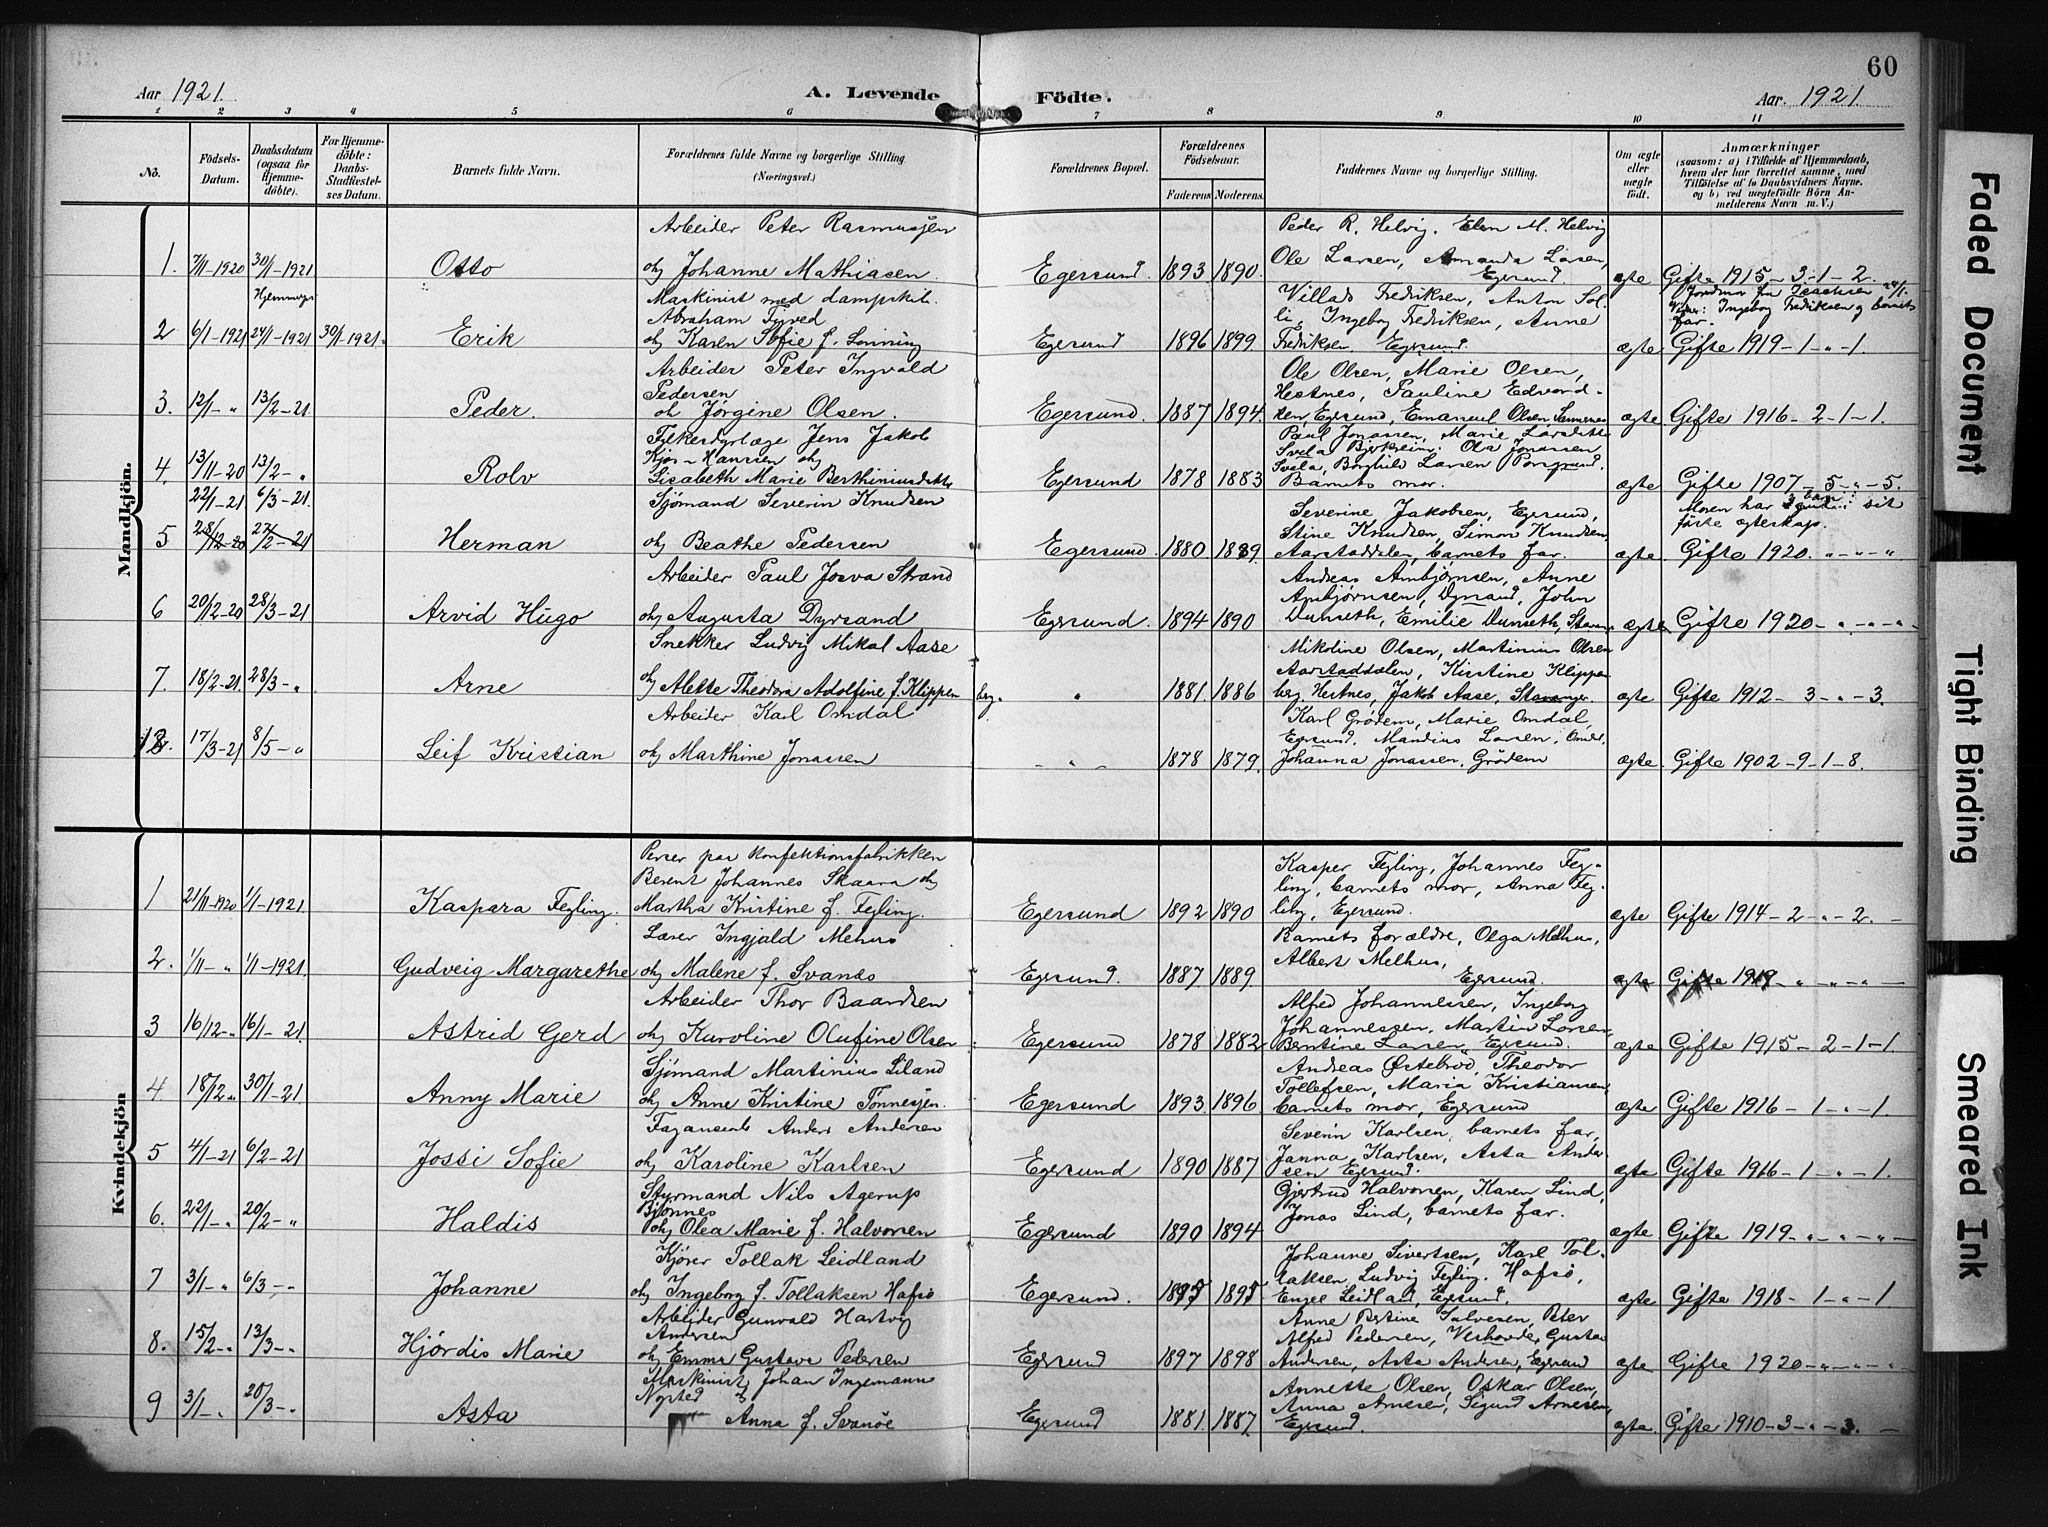 60
Aar 1921. A. Levende Födte. Aar. 1921.
1 2 3 4 5 6 7 8 9 10 11
No.
Födsels-Datum.
Daabsdatum (ogsaa for Hjemme-döbte).
For Hjemme-döbte: Daabs-Stadfæstel-ses Datum.
Barnets fulde Navn.
Forældrenes fulde Navne og borgerlige Stilling.
(Næringsvei.)
Forældrenes Bopæl.
Forældrenes Födselsaar.
Faderens Moderens
Faddernes Navne og borgerlige Stilling.
Om ægte eller uægte födt.
Anmærkninger
(saasom: a) i Tilfælde af Hjemmedaab, hvem der har forrettet samme, med Tilföielse af to Daabsvidners Navne, og b) ved uægtefödte Börn An-melderens Navn m. V.)
Mandkjön.
1. 7/11-1920 30/1-1921 Otto
Arbeider Peter Rasmussen
og Johanne Mathiasen.
Egersund. 1893 1890.
Peder R. Helvig. Elen M. Helvig
Ole Larsen, Amanda Larsen,
Egersund.
ægte Gifte 1915-3-1-2.
2 6/1-1921 24/1-1921 30/1-1921. Erik
Maskinist med dampskib.
Abraham Tyved
og Karen Sofie f. Lönning
Egersund 1896 1899.
Villads Fredriksen, Anton Sol-
li, Ingeborg Fredriksen, Anne
Fredriksen Egersund.
Ingeborg Fredriksen og barnets
far.
ægte Gifte 1919-1-"-1.
3. 12/1-" 13/2-21. Peder.
Arbeider Peter Ingvald
Pedersen
og Jørgine Olsen.
Egersund. 1887 1894.
Ole Olsen, Marie Olsen,
Hestnes, Pauline Edvard-
sen, Egersund, Emanuel Olsen,
ægte Gifte 1916-2-1-1.
4. 13/11-20 13/2-" Rolv
Fylkesdyrlæge Jens Jakob
Kjos-Hanssen og
Lisabeth Marie Berthiniusdatter
Egersund 1878 1883
Paul Jonassen, Marie Larsdatter
Svela Bjerkreim. Ola Jonassen
Svela, Borghild Larsen Porsgrund.
Barnets mor.
ægte Gifte 1907-5-"-5.
22/1-21 6/3-21.
5 28/12-20 27/2-21 Herman
Sjømand Severin Knudsen
og Beathe Pedersen
Egersund. 1880 1889.
Severine Jakobsen, Egersund,
Stine Knudsen, Simon Knudsen,
Aarstaddalen, barnets far.
Moren har 3 barn i sit
første ægteskap.
ægte. Gifte 1920. " - " - "
6 20/12-20 28/3-21 Arvid Hugo
Arbeider Paul Josva Strand
og Augusta Dyrsand
Egersund. 1894 1890
Andreas Ambjørnsen, Anne
Ambjørnsen, Dyrsand, John
Dunseth, Emilie Dunseth,
ægte Gifte 1920-"-"-"-
7. 18/2-21. 28/3-" Arne
Snekker Ludvig Mikal Aase
og Alette Theodora Adolfine f. Klippen berg.
" 1881. 1886
Mikoline Olsen, Martinius Olsen
Aarstaddalen, Kirstine Klippen
berg Hestnes, Jakob Aase, Stavanger.
ægte Gifte 1912-3-"-3.
8. 17/3-21 8/5-" Leif Kristian
Arbeider Karl Omdal
og Marthine Jonassen
- " - 1878 1879.
Karl Grödem, Marie Omdal,
Egersund. Mandius Larsen, Omdal,
Johanna Jonassen, Grödem
ægte. Gifte 1902-9-1-8.
Kvindekjön
1 21/11-1920 1/1-1921 Kaspara Fegling.
Presser paa Konfektionsfabrikken
Berent Johannes Skaara og
Martha Kristine f. Fegling.
Egersund 1892 1890
Kasper Fegling, Johannes Feg-
ling, barnets mor, Anna Feg-
ling, Egersund.
ægte Gifte 1914-2-"-2.-
2. 1/11-" 1/1-1921. Gudveig Margarethe
Lærer Ingjald Mehus
og Malene f. Svanes
Egersund. 1887 1889.
Barnets forældre, Olga Melhus,
Albert Melhus,
Egersund.
ægte Gifte 1919-"-"-"-
3 16/12-" 16/1-21. Astrid Gerd
Arbeider Thor Baardsen
og Karoline Olufine Olsen
Egersund 1878 1882
Alfred Johannessen, Ingeborg
Johannessen, Martin Larsen,
Bentine Larsen, Egersund.
ægte Gifte 1915-2-1-1.
4 18/12-" 30/1-21. Anny Marie
Sjømand Martinius Liland
og Anne Kristine Tönnesen.
Egersund 1893 1896
Andreas Østebröd, Theodor
Tollefsen, Maria Kristiansen,
barnets mor, Egersund
ægte Gifte 1916-1-"-1.
5 4/1-21 6/2-21 Jossi Sofie
Anders Andersen
og Karoline Karlsen
Egersund 1890 1887
Severin Karlsen, barnets far,
Janna Karlsen, Asta Ander-
sen Egersund.
ægte Gifte 1916-1-"-1.
6. 22/1-" 20/2-" Haldis
Styrmand Nils Agerup
Bjönnes
og Olea Marie f. Halvorsen
Egersund 1890 1894
Gjertrud Halvorsen, Karen Lind,
Jonas Lind, barnets far.
ægte Gifte 1919-"-"-"-
7 3/1-" 6/3-" Johanne
Kjører Tollak Leidland
og Ingeborg f. Tollaksen Hafsö
Egersund. 1895 1895
Johanne Sivertsen, Karl Tol-
laksen, Ludvig Fegling. Hafsö,
Engel Leidland, Egersund.
ægte Gifte 1918-1-"-1
8. 15/2-" 13/3-" Hjördis Marie
Arbeider Gunvald Hartvig
Andersen
og Emma Gustava Pedersen
Egersund 1897 1898
Anne Bertine Salvesen, Peter
Alfred Pedersen, Verhovde, Gustav
Andersen, Asta Andersen, Egersund
ægte Gifte 1920-"-"-"
9 3/1-" 20/3-" Asta
Maskinist Johan Ingemann
Nysted og
Anna f. Svanöe
Egersund 1881. 1887.
Annette Olsen, Oskar Olsen,
Anna Arnesen, Sigurd Arnesen,
Egersund.
ægte. Gifte 1910-3-"-3.-
Faded Document
Tight Binding
Smeared Ink